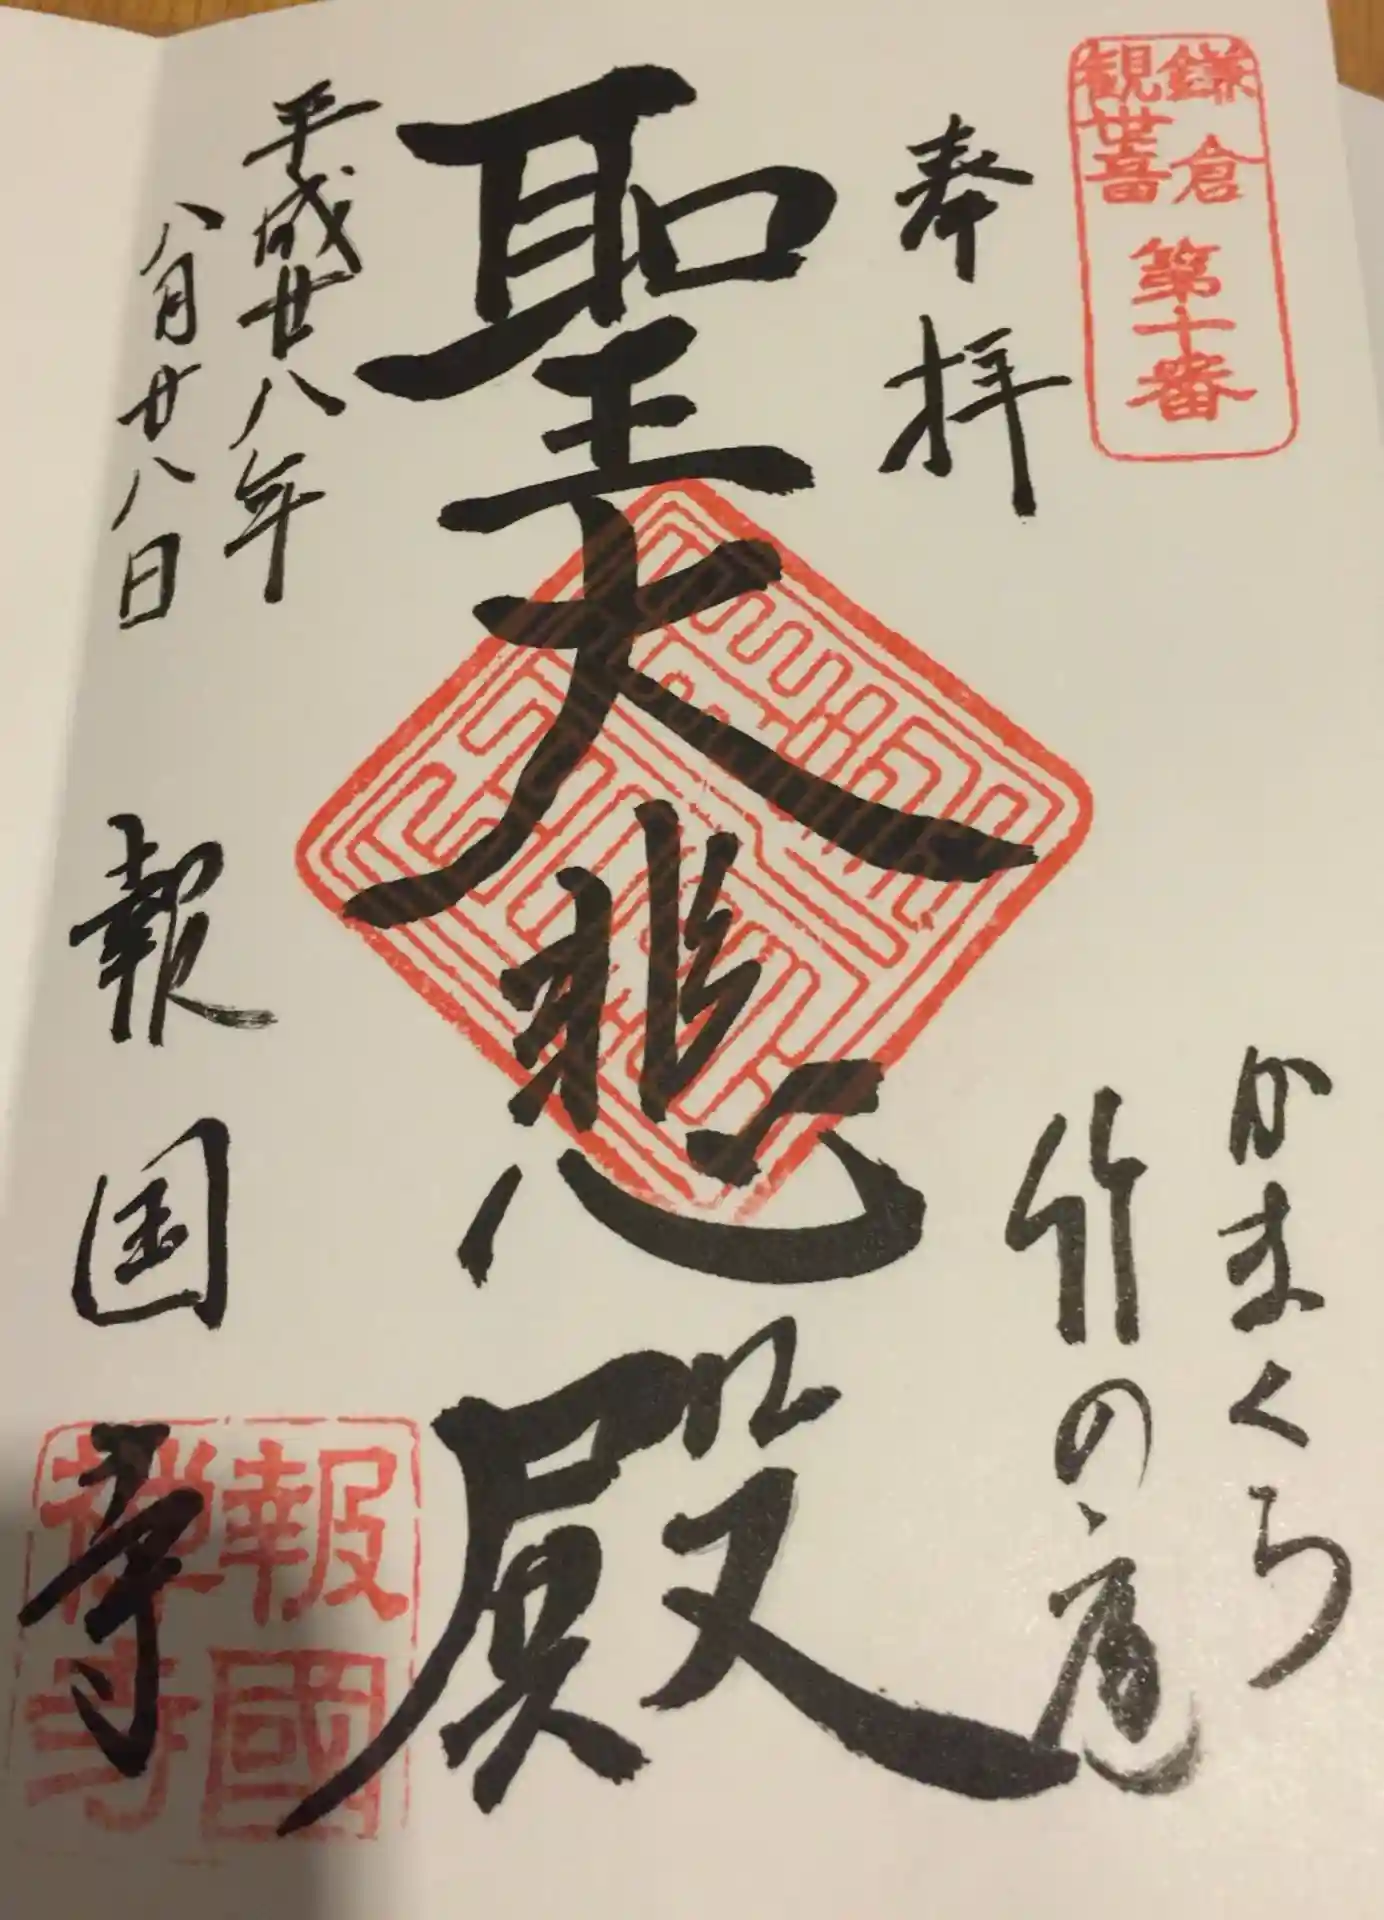 鎌倉
観世音
第十番
奉拝
かまくら
竹の庭
聖大悲殿
平成廿八年
八月廿八日
報国寺
報國
禅寺